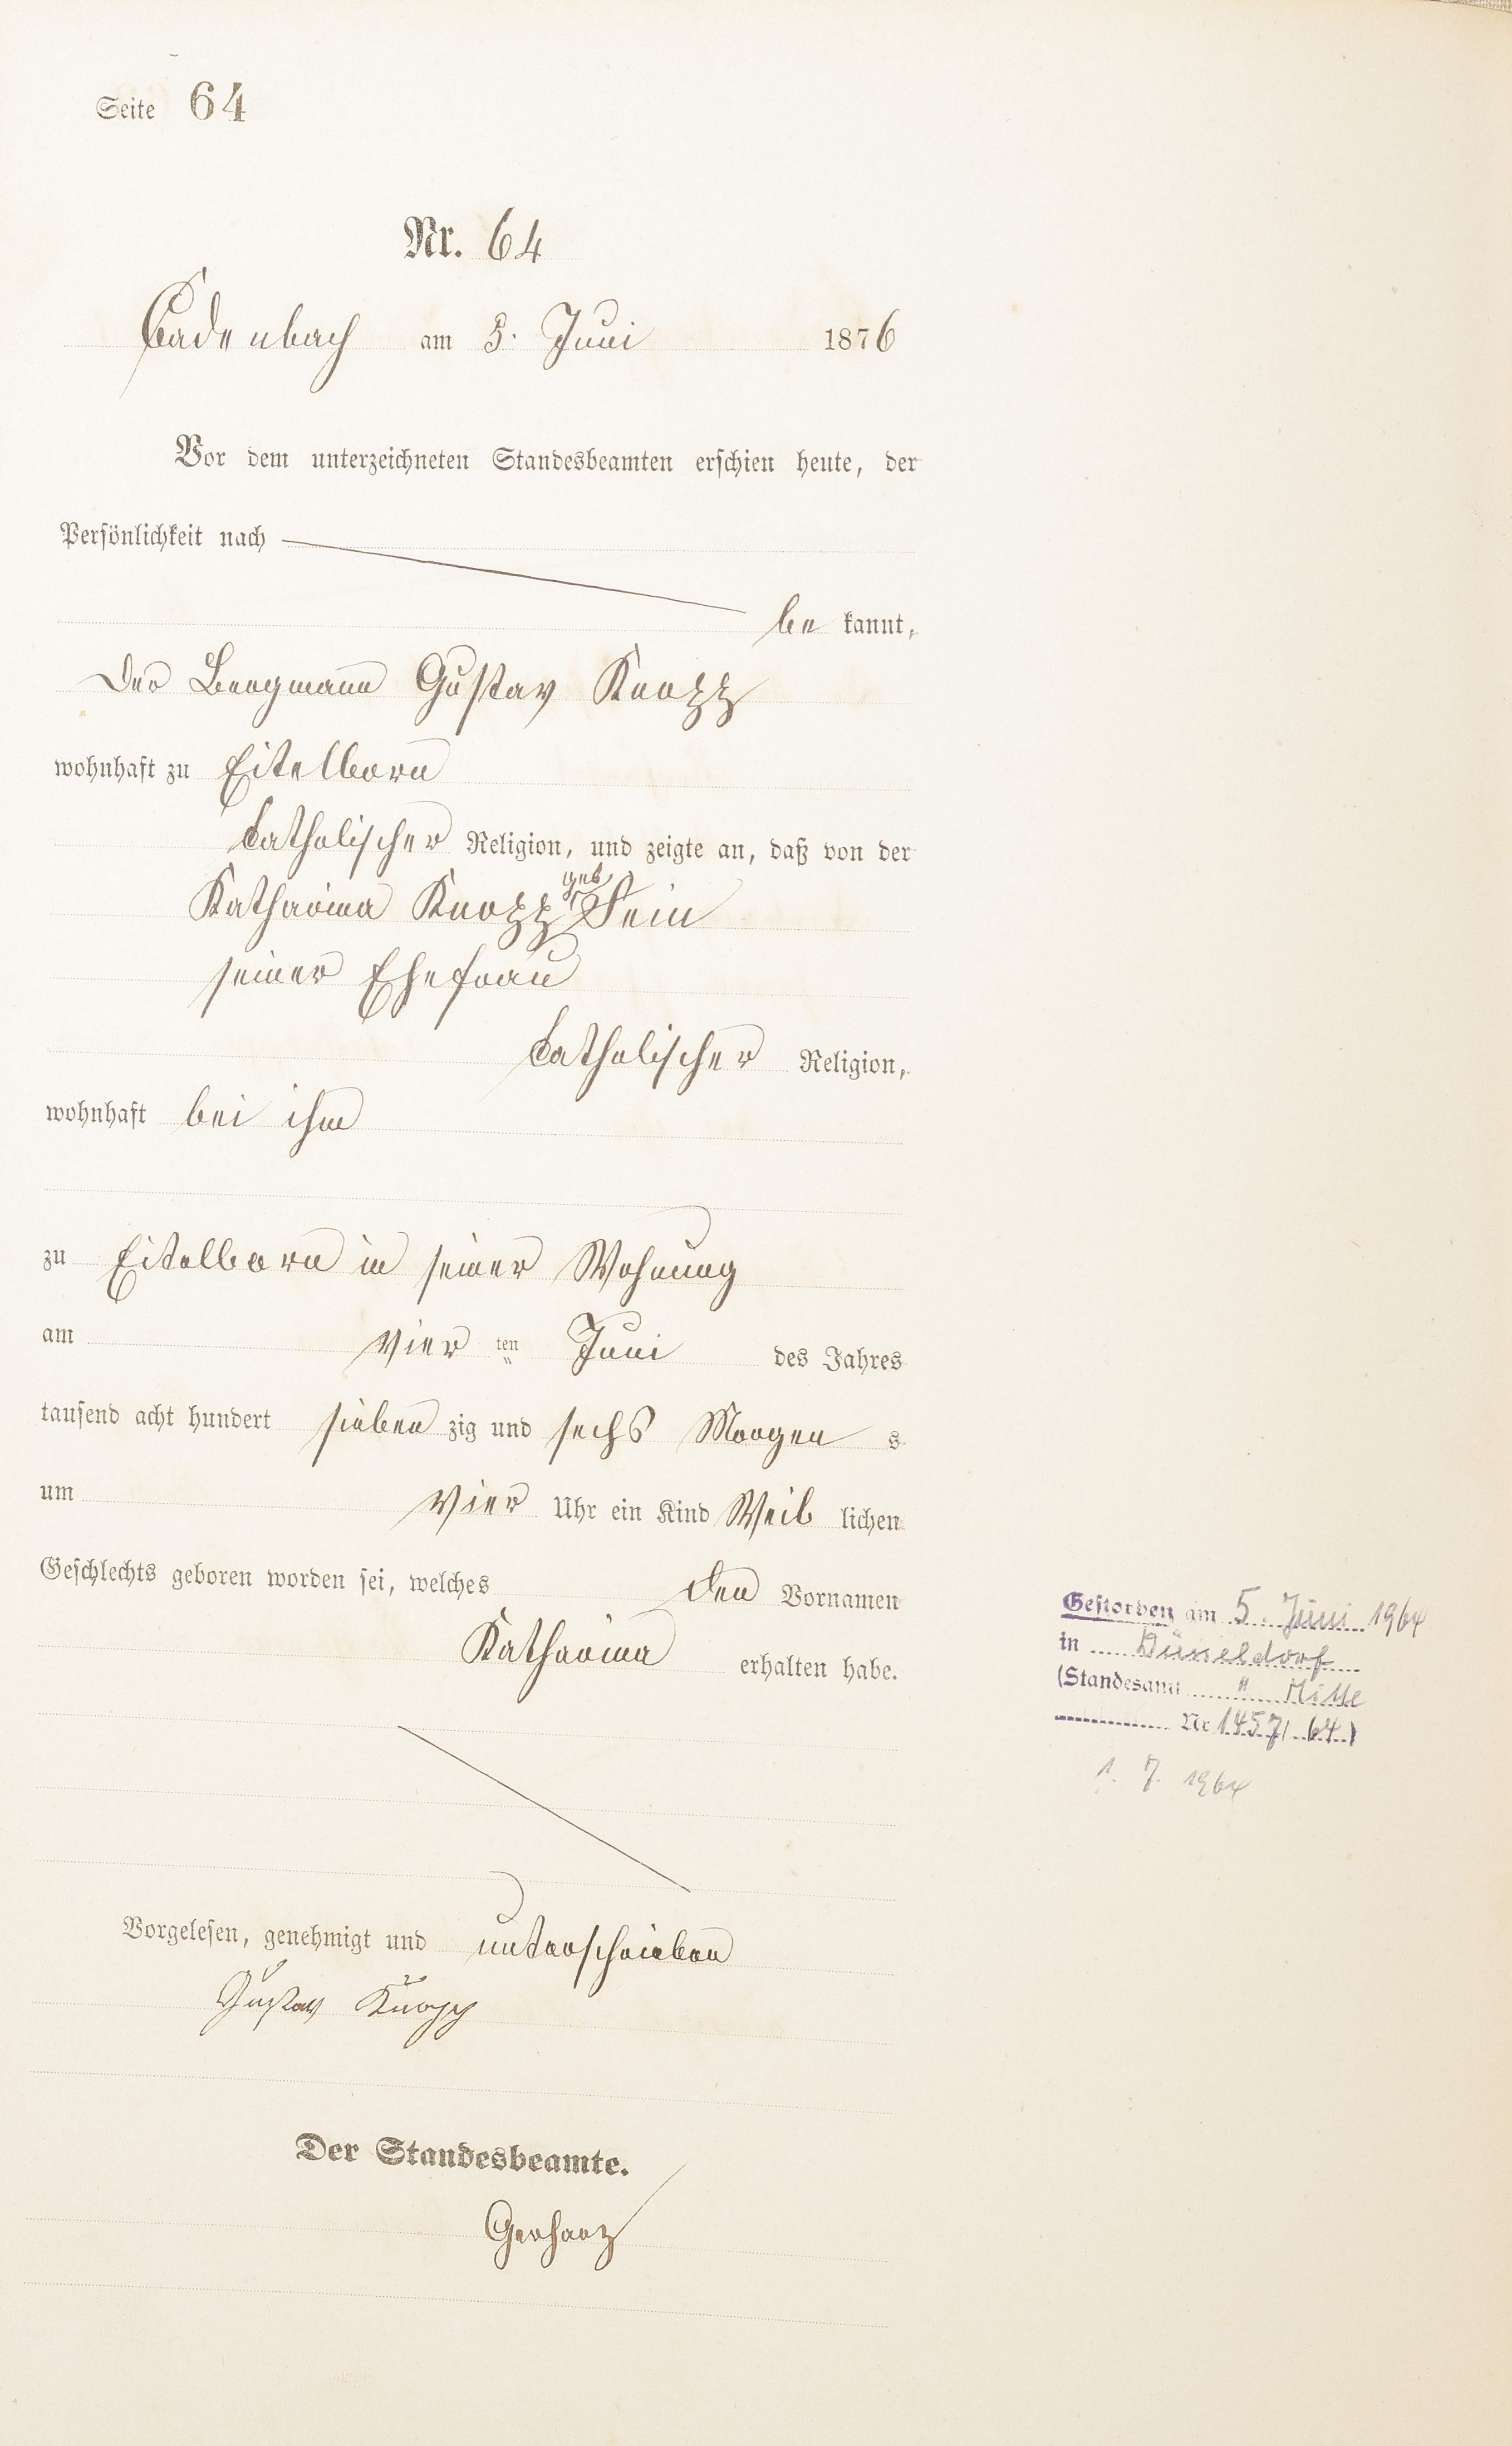 Seite 64
Nr. 64
Cadenbach am 5. Juni 1876
Vor dem unterzeichneten Standesbeamten erschien heute, der
Persönlichkeit nach
be kannt,
der Bergmann Gustav Knopp
wohnhaft zu Eitelborn
katholischer Religion, und zeigte an, daß von der
Katharina Knopp geb Fein
seiner Ehefrau
katholischer Religion,
wohnhaft bei ihm
zu Eitelborn in seiner Wohnung
am vier ten Juni des Jahres
tausend acht hundert sieben zig und sechs Morgen s
um vier Uhr ein Kind Weib lichen
Geschlechts geboren worden sei, welches den Vornamen
Katharina erhalten habe.
Vorgelesen, genehmigt und unterschrieben
Gustav Knopp
Der Standesbeamte.
Gerharz
Gestorben am 5. Juni 1964
in Düsseldorf
(Standesamt " Mitte
Nr 1457/64)
1. 7. 1964